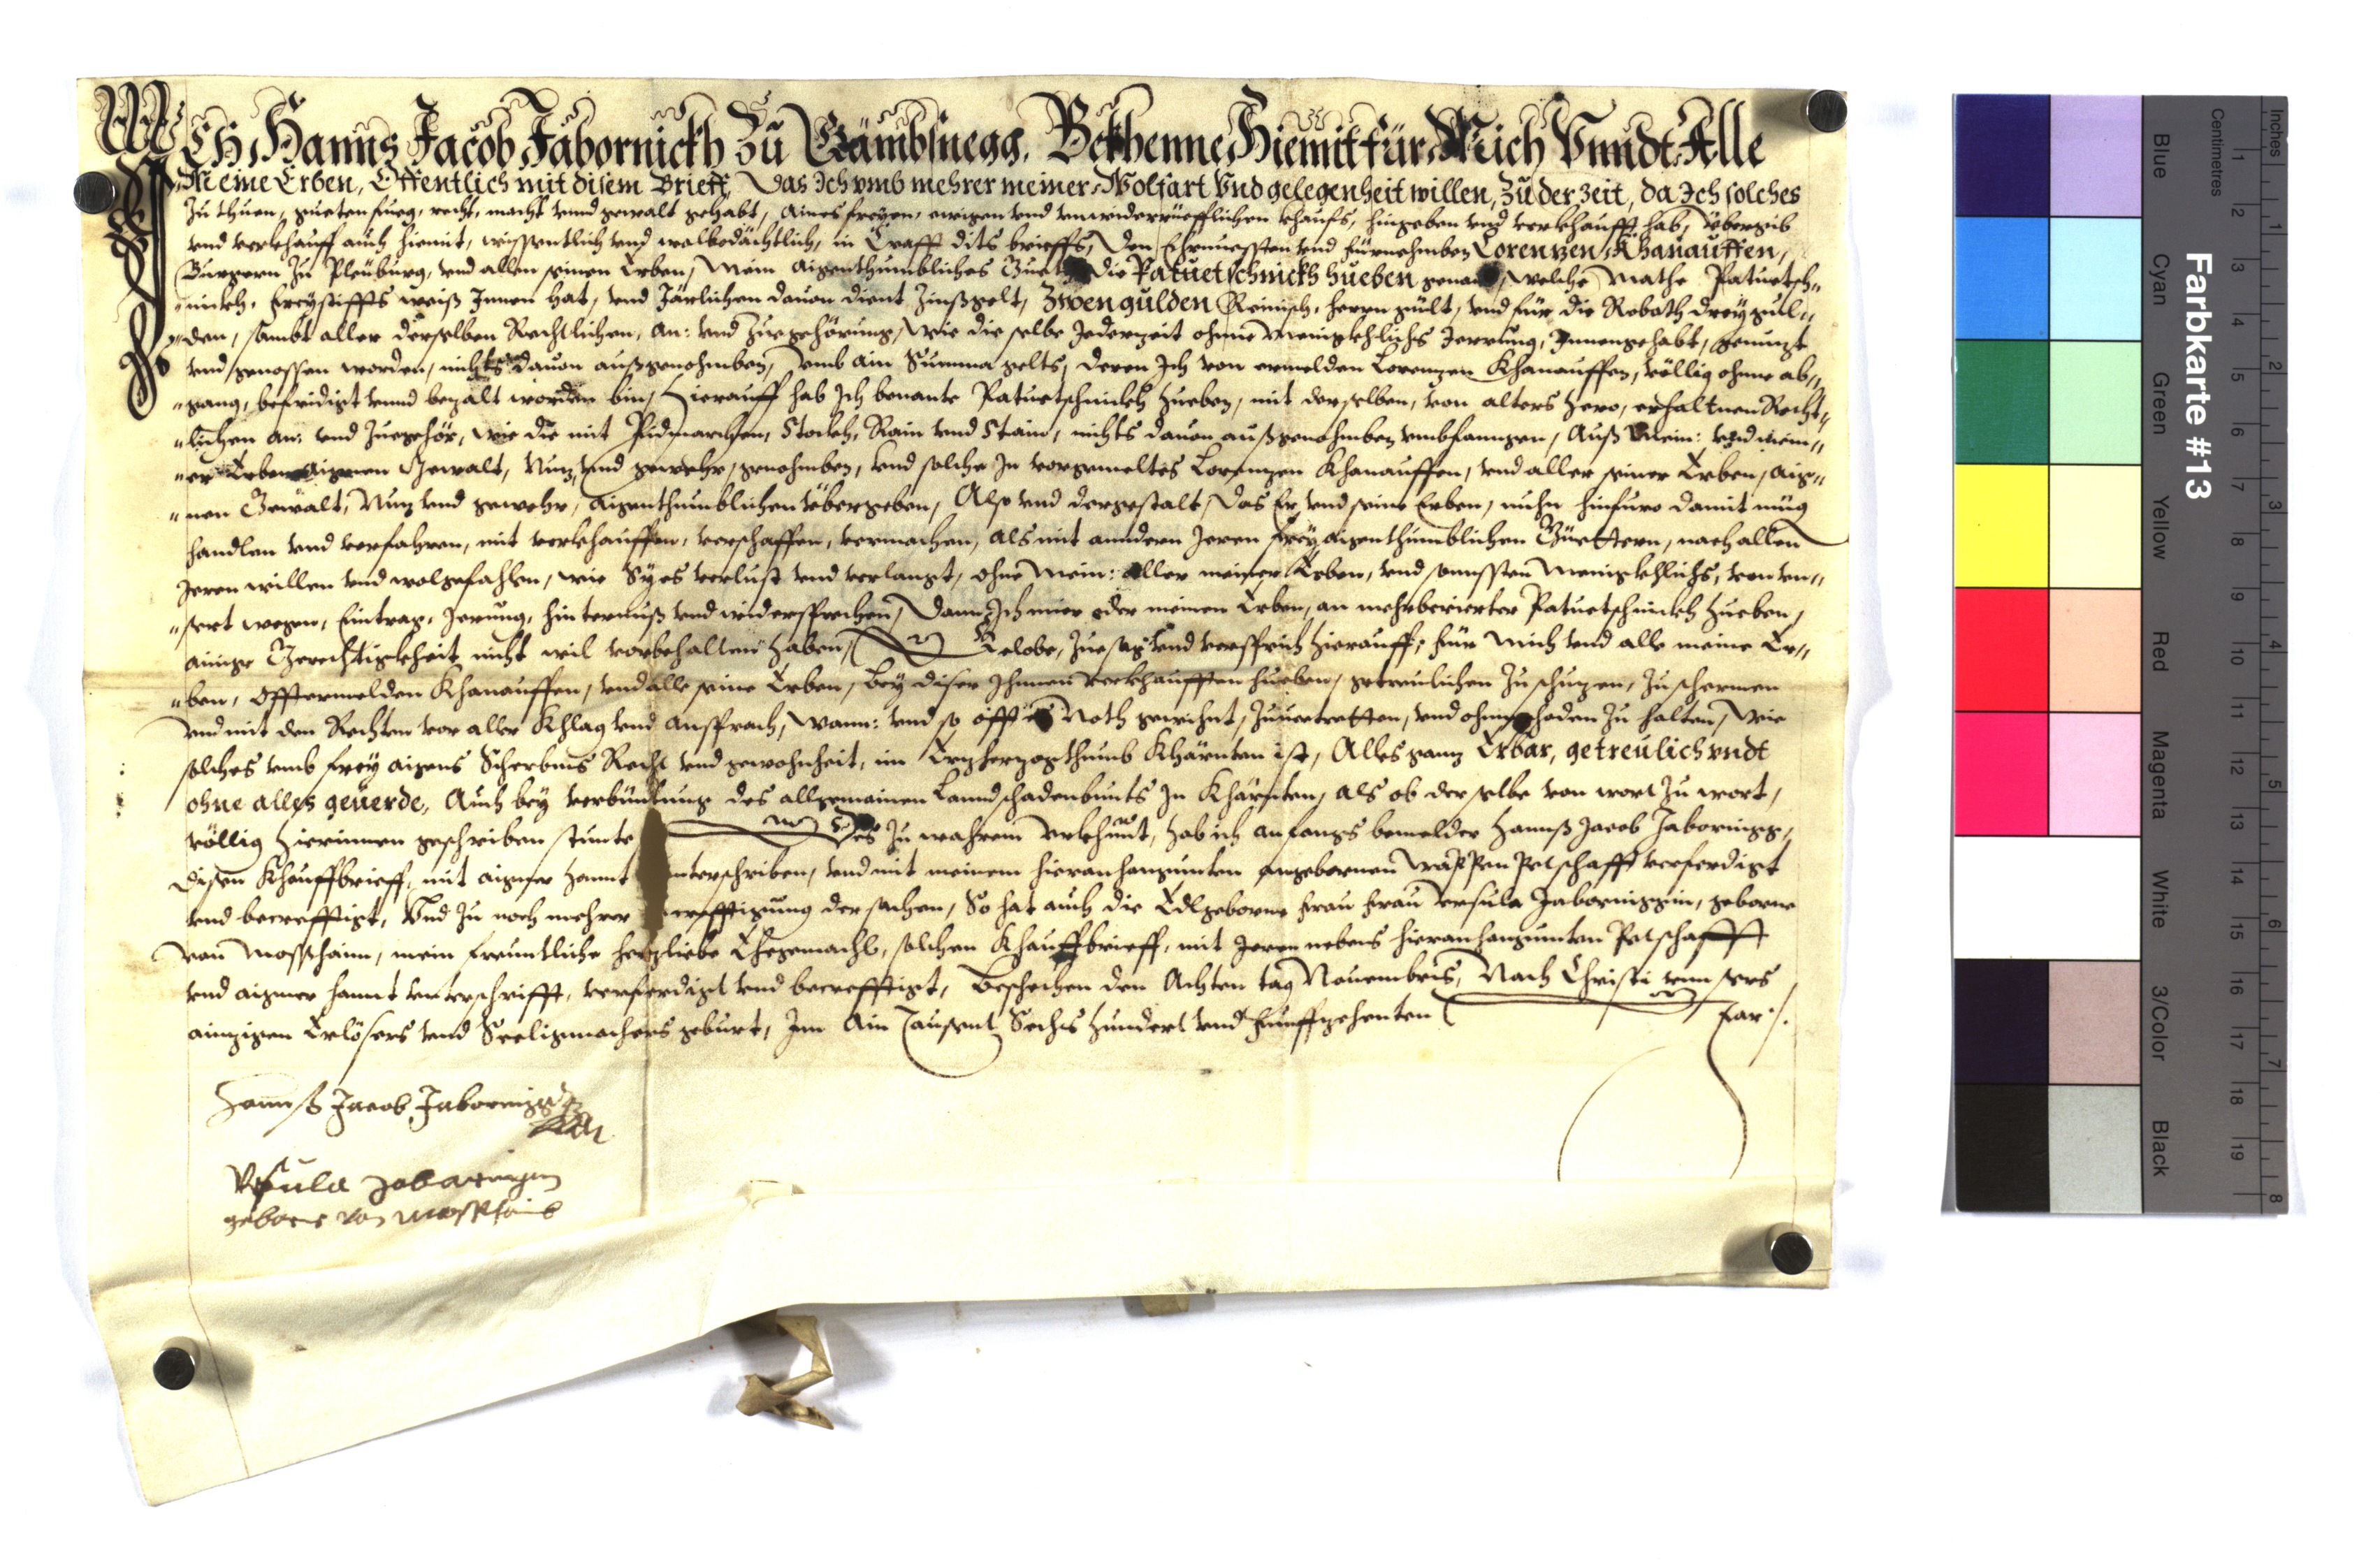 ICH Hanns Jacob Jabornickh Zu Gämbsnegg, Bekhenne Hiemit für Mich Vnndt Alle
Meine Erben, Offentlich mit disem Brieff, Das Ich vmb mehrer meiner Wolfart Vnd gelegenheit willen, Zu der Zeit, da Ich solches
Zu thuen, gueten fueg, recht, macht vnnd gewalt gehabt, aines freyen, ewigen vnd vnwiderrüefflichen khaufs, hingeben vnd verkhaufft hab, übergib
vnd verkhauff auch hiemit, wissentlich vnd wolbedächtlich, in Crafft dits brieffs, Den Ehrnuessten vnd fürnehmben Lorenzen Khanauffen,
Burgern Zu Pleüburg, vnd allen seinen Erben, Mein aigenthumbliches Guet die Patuetschnickh hueben welche Mathe Patuetsch„
„nickh, freystiffts weiß Innen hat, vnd Järlichen dauon dient Zinßgelt, Zwen gulden Reinisch, herrn gült, vnd für die Robath drey gul„
„den, sambt aller derselben Rechtlichen, an: vnd Zuegehörung, wie die selbe Jederzeit ohne Menigkhlichs Jerrung, Innengehabt, genuzt
vnd genossen worden, nichts dauon außgenohmben, vmb ain Summa gelts, deren Ich von ermelden Lorenzen Khanauffen, völlig ohne ab„
„gang, befridigt vnnd bezalt worden bin, Hierauff hab Ich benante Patuetschnickh hueben, mit derselben, von alters hero, erhaltnen Recht„
„lichen an: vnd Zuegehör, wie die mit Pidmarchen, Stockh, Rain vnd Stain, nichts dauon außgenohmben vmbfanngen, Auß Mein: vnd mein„
„er Erben aignen Gewalt, Nuz vnd gewehr, genohmben, vnd solche In vorgemeltes Lorenzen Khanauffen, vnd aller seiner Erben, aig„
„nen Gewalt, Nuz vnd gewehr, aigenthumblichen übergeben, Also vnd dergestalt, Das Er vnd seine Erben, nuhn hinfuro damit müg
handlen vnd verfahren, mit verkhauffen, verschaffen, vermachen, als mit anndern Jeren frey aigenthumblichen Güettern, nach allen
Jeren willen vnd wolgefahlen, wie Sy es verlust vnd verlangt, ohne Mein: aller meiner Erben, vnd sonnsten Menigkhlichs, von vn„
„sert wegen, Eintrag, Jerrung, hinternuß vnd widersprechen, Dann Ich mir oder meinen Erben, an mehrberierter Patuetschnickh hueben,
ainige Gerechtigkheit nicht wil vorbehalten haben, Gelobe, Zuesag vnd versprich hierauff, für Mich vnd alle meine Er„
„ben, offtermelden Khanauffen, vnd alle seine Erben, bey diser Ihnen verkhaufften hueben, getreulichen Zu schuzen, Zu schermen
vnd mit den Rechten vor aller Khlag vnd ansprach, wann: vnd so offt es Noth geschicht, Zuuertretten, vnd ohne schaden Zu halten, wie
solches vmb frey aigens Scherbms Recht vnd gewohnheit, im Erzherzogthumb Khärnten ist, Alles ganz Erbar, getreulich vndt
ohne alles geuerde, Auch bey verbündtung des allgemainen Lanndschadenbunts In Khärnten, als ob der selbe von wort Zu wort,
völlig hierinnen geschriben stunte Des Zu wahrem vrkhunt, hab ich anfangs bemelder Hannß Jacob Jabornigg,
disen Khauffbrieff, mit aigner hannt unterschriben, vnd mit meinem hieranhangunten angebornen Wappen Petschafft verferdigt
vnd becrefftigt, Vnd Zu noch mehrer becrefftigung der sachen, So hat auch die Edlgeborne Frau Frau Vrsula Jaborniggin, geborne
von Mosshaim, mein freuntliche herzliebe Ehegemachl, solchen Khauffbrieff, mit Jeren nebens hieranhangunten Petschafft
vnd aigner hannt vnterschrifft, verferdigt vnd becrefftigt, Beschechen den Achten tag Nouembris, Nach Christi vnnsers
ainigen Erlösers vnd Seeligmachers geburt, Im Ain Tausent Sechs Hundert vnd Funffzehenten Jar /.
Hannß Jacob Jabornigg
Vrsula Jabarnigin
geborne von Mosshaim
Farbkarte #13
Blue Cyan Green Yellow Red Magenta White 3/Color Black
Centimetres 1 2 3 4 5 6 7 8 9 10 11 12 13 14 15 16 17 18 19
Inches 1 2 3 4 5 6 7 8